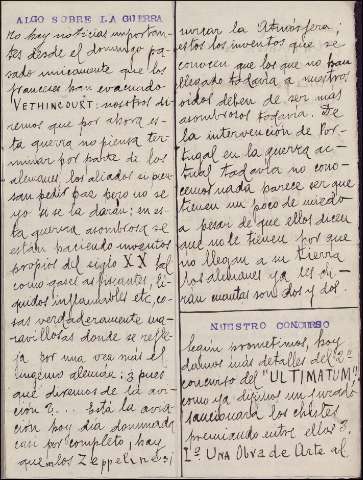 ALGO SOBRE LA GUERRA
No hay noticias importan-
tes desde el domingo pa-
sado unicamente que los
franceses han evacuado
VETHINCOURT: nosotros di-
remos que por ahora es-
ta guerra no piensa ter-
minar por parte de los
alemanes los aliados si pien-
san pedir paz pero no se
yo si se la daran: en es-
ta guerra asombrosa se
estan haciendo inventos
propios del siglo XX tal
como gases asfixiantes, li-
quidos inflamables etc, co-
sas verdaderamente ma-
ravillosas donde se refle-
ja por una vez más el
ingenio alemán: ¿pues
qué diremos de la avi-
ación?... Está la avia-
ción hoy dia dominada
casi por completo, hay
que los Zeppelines;
la Atmósfera;
estos los inventos que se
conocen que los que no han
llegado todavia a nuestros
oidos deben de ser más
asombrosos todavia. De
la intervención de Por-
tugal en la guerra ac-
tual todavia no cono-
cemos nada parece ser que
tienen un poco de miedo
a pesar de que ellos dicen
que no le tienen por que
no llegan a su tierra
los alemanes ya les di-
rán cuantas son dos y dos.
NUESTRO CONCURSO
Según prometimos, hoy
damos más detalles del 2º
concurso del "ULTIMATUM",
como ya dijimos un jurado
sancionará los chistes
premiando entre ellos 3.
1º UNA Obra de Arte al